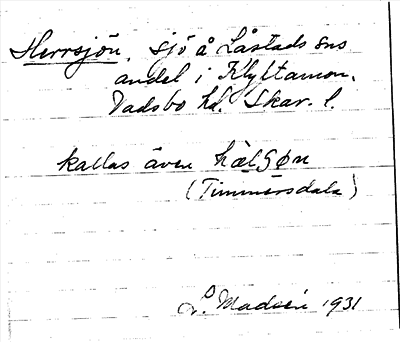 Herrsjön, sjö å Låstads sns
andel i Klyftamon,
Vadsbo hd. Skar. l.
kallas även hælsøn
(Timmersdala)
Madsén 1931